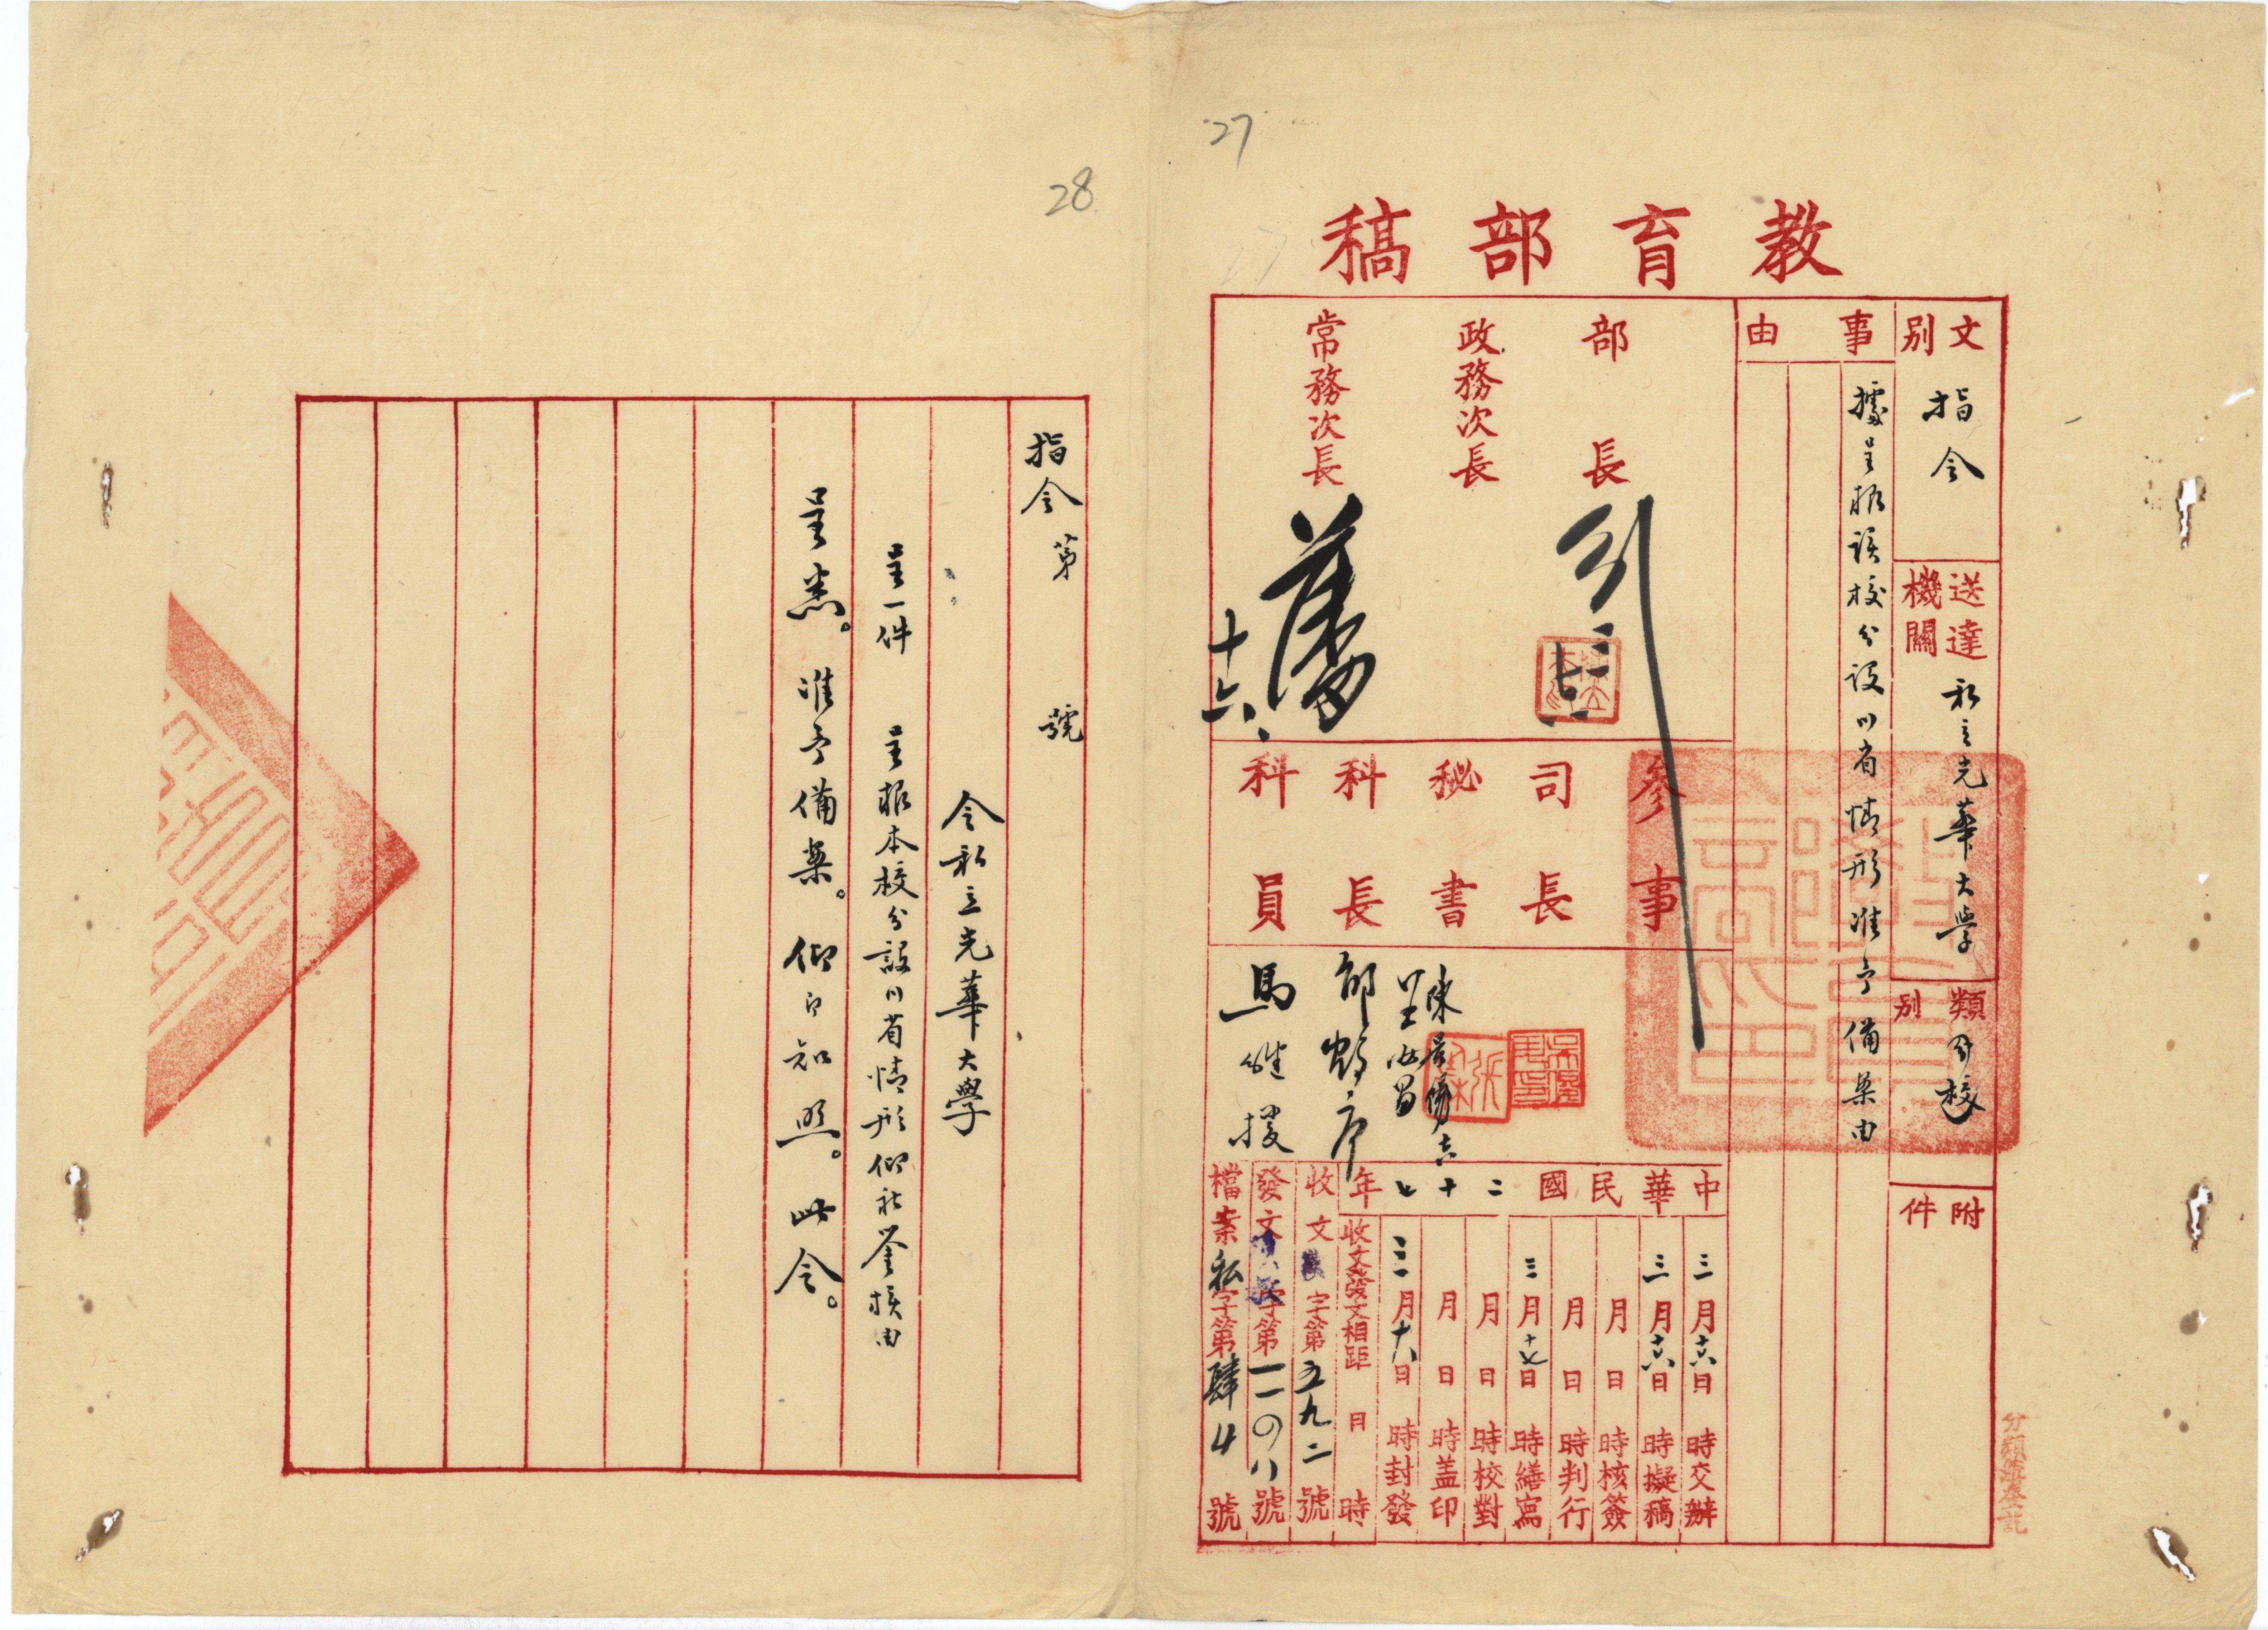 27
教育部稿
文別 指令
送達機關 私立光華大學
類別 分校
附件
事由
據呈報該校分設川省情形准予備案由
部長
政務次長
常務次長
十六
參事
司長
秘書
科長
科員
中華民國二十七年
三月十六日 時交辦
三月十六日 時擬稿
月 日 時核簽
月 日 時判行
三月十七日 時繕寫
月 日 時校對
月 日 時蓋印
三月十八日 時封發
收文發文相距 日 時
收文 字第五九二號
發文 字第一一〇八號
檔案私字第肆4號
28
指令 第 號
令私立光華大學
呈一件 呈報本校分設川省情形仰祈鑒核由
呈悉。准予備案。仰即知照。此令。